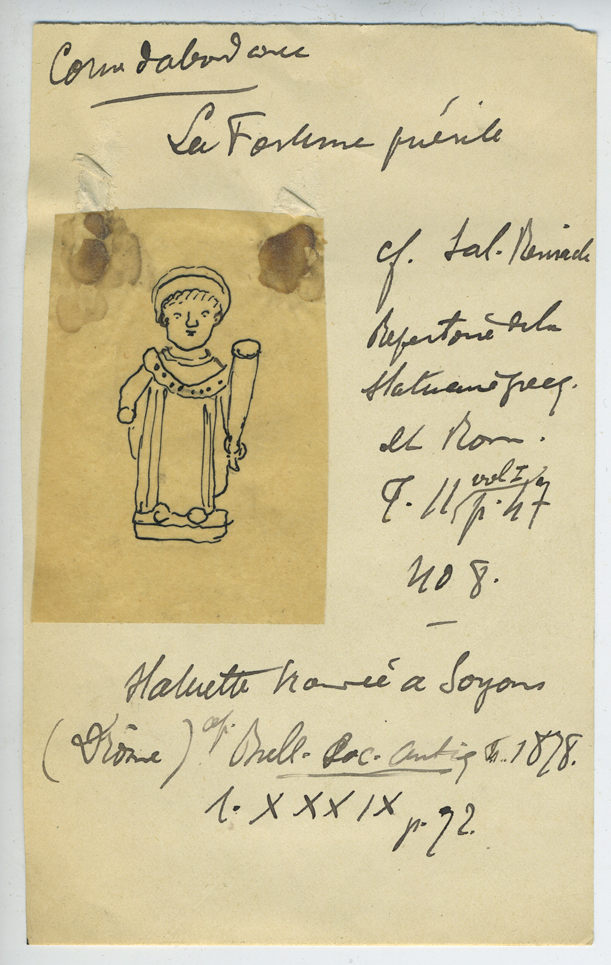 Corne d'abondance
La Fortune puérile
cf. Sal. Reinach
Répertoire de la
Statuaire grecq.
et Rom.
T. II, vol I,
p. 47
No 8.
Statuette trouvée à Soyons
(Drôme) cf. Bull. Soc. Antiq. Fr. 1878.
t. XXXIX p. 72.